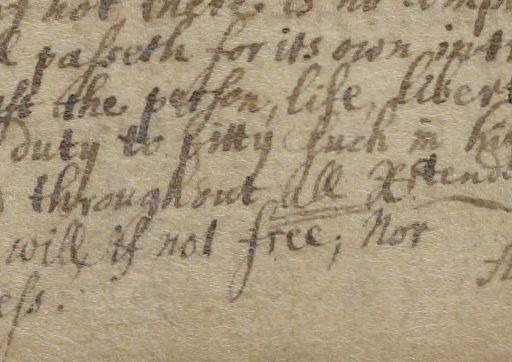 not there is no
passeth for its own
the person, life, libert
duty to pitty such in his
throughout all Xstend
will, if not free; Nor
ess.